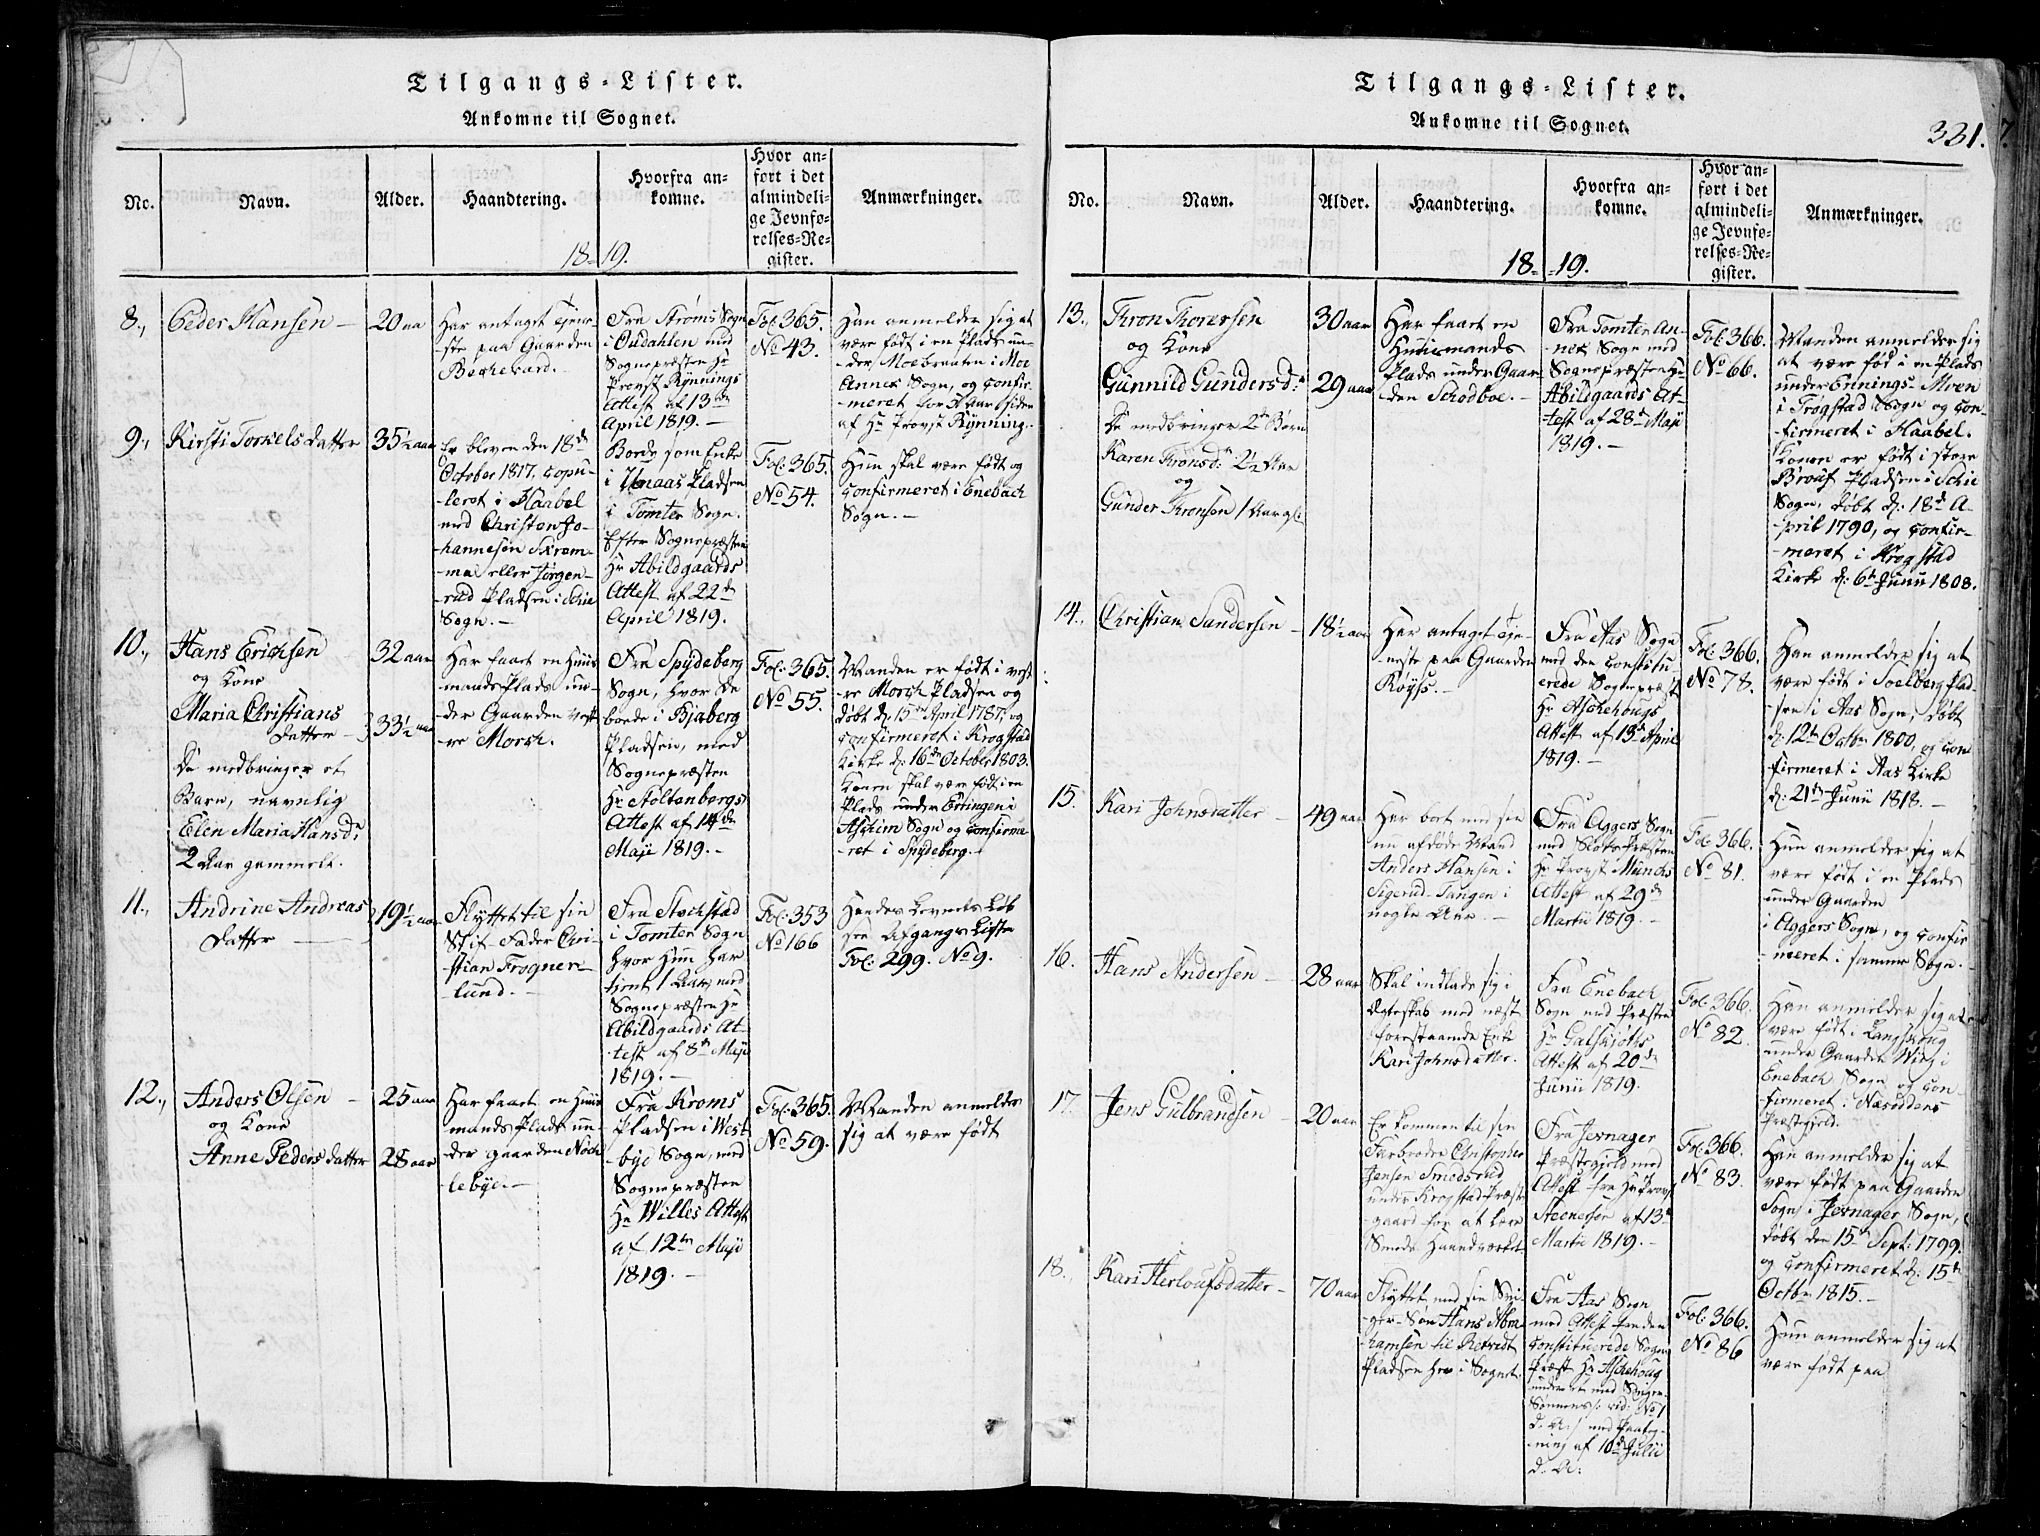 Tilgangs-Lister.
Ankomne til Sognet.
No.
Navn.
Alder.
Haandtering.
Hvorfra an-
komne.
Hvor an-
ført i det
almindeli-
ge Jevnfø-
relses-Re-
gister.
Anmærkninger.
18-19.
8.,
Peder Hansen
20 aa
Har antaget tjene-
-ste paa Gaarden
Beckevard.
Fra Strøms Sogn
i Oudahlen med
Sognepræsten Hr
Provst Rynnings
Attest af 13de
April 1819.
Fol: 365.
No 43.
Han anmelder sig at
være født i en Plads un-
der Moebraaten i Moe
Annex Sogn, og confir-
meret for 3 Aar siden
af Hr Provst Rynning.
9.,
Kirsti Torkelsdatter
35½ aar
Er bleven den 18de
October 1817. copu-
leret i Haabel
med Christen Jo-
hannesen Skrem-
ma eller Jørgen-
rud Pladsen i Schie
Sogn.
Boede som Enke
i Unaas Pladsen
i Tomter Sogn.
Efter Sognepræsten
Hr Abildgaards
Attest af 22de
April 1819.
Fol: 365.
No 54.
Hun skal være født og
confirmeret i Enebach
Sogn.
10.,
Hans Erichsen
og Kone
Maria Christians
datter
De medbringer et
Barn, navnlig
Elen Maria Hansd:
2 Aar gammelt.
32 aar
33½ aar
Har faaet en Huus
mands Plads un-
der Gaarden vest-
re Morch.
Fra Spydeberg
Sogn, hvor De
boede i Bjaberg
Pladsen, med
Sognepræsten
Hr Stoltenbergs
Attest af 14de
Maji 1819.
Fol: 365.
No 55.
Manden er født i vest-
re Morch Pladsen og
døbt d: 15de April 1787, og
confirmeret i Krogstad
Kirke d: 16de October 1803.
Konen skal være født i en
Plads under Ertingen i
Aschim Sogn og confirme
-ret i Spydeberg.
11.,
Andrine Andreas
datter
19½ aar
Flyttet til sin
Stif-Fader Chri-
stian Frogner-
lund.
Fra Stochstad
i Tomter Sogn
hvor Hun har
tjent 1 Aar, med
Sognepræsten Hr
Abildgaards At-
test af 8de Maji
1819.
Fol: 353
No 166
Hendes Levnets Løb
see Afgangs Liste
Fol: 299. No 9.
12.,
Anders Olsen
og Kone
Anne Pedersdatter
25 aar
28 aar
Har faaet en Huus
mands Plads un-
der gaarden Nøch
lebye.
Fra Kroms
Pladsen i West-
bye Sogn, med
Sognepræsten
Hr Willes Attest
af 12te Maji
1819.
Fol: 365.
No 59.
Manden anmelder
sig at være født
Tilgangs-Lister.
Ankomne til Sognet.
331.
No.
Navn.
Alder.
Haandtering.
Hvorfra an-
komne.
Hvor an-
ført i det
almindeli-
ge Jevnfø-
relses-Re-
gister.
Anmærkninger.
18-19.
13.,
Thron Thoresen
og Kone
Gunnild Gundersd:
De medbringer 2de Børn
Karen Thronsd: 2½ Aar
og
Gunder Thronsen 1 Aar gl:
30 aar
29 aar
Har faaet en
Huusmands
Plads under Gaar
den Schodboe.
Fra Tomter An-
nex Sogn med
Sognepræsten Hr
Abildgaards At-
test af 28de Maji
1819.
Fol: 366.
No 66.
Manden anmelder sig
at være fød i en Plads
under Ennings-Moen
i Trøgstad Sogn og con-
firmeret i Haabel.
Konen er født i store
Brouf Pladsen i Schie
Sogn, døbt d: 18de A-
pril 1790, og confir-
meret i Krogstad
Kirke d: 6te Junii 1808.
14.,
Christian Sundersen
18½ aar
Har antaget tje-
neste paa Gaarden
Røyss.
Fra Aas Sogn
med den constitu
erede Sognepræst
Hr Aschehougs
Attest af 13de April
1819.
Fol: 366.
No 78.
Han anmelder sig at
være født i Soelberg Plad-
sen i Aas Sogn, døbt
d: 12te Octbr 1800, og con
firmeret i Aas Kirke
d: 21de Junii 1818.
15.
Kari Johnsdatter
49 aar
Har boet med sin
nu afdøde Mand
Anders Hansen i
Sigerud-Tangen i
nogle Aar.
Fra Aggers Sogn
med SlotsPræsten
Hr Provst Münchs
Attest af 29de
Martii 1819.
Fol: 366.
No 81.
Hun anmelder sig at
være født i en Plads
under Gaarden
i Aggers Sogn, og confir
meret i samme Sogn.
16.
Hans Andersen
28 aar
Skal indlade sig i
Ægteskab med næst
forestaaende Enke
Kari Johnsdatter.
Fra Enebach
Sogn med Præsten
Hr Galschjøths
Attest af 20de
Junii 1819.
Fol: 366.
No 82.
Han anmelder sig at
være født i Langskoug
under Gaarden Wiig i
Enebach Sogn og con-
firmeret i Næsoddens
Præstegjeld.
17.
Jens Gulbrandsen
20 aar
Er kommen til sin
Farbroder Christopher
Jensen Smedsrud
under Krogstad Præste
gaard for at lære
Smede Haandværket
Fra Jevnager
Præstegjeld med
Attest fra Hr Provst
Steenersen af 13de
Martii 1819.
Fol: 366.
No 83.
Han anmelder sig at
være født paa Gaarden
Sogn i Jevnager Sogn,
døbt den 15de Sept: 1799.
og confirmeret d: 15de
Octbr 1815.
18.,
Kari Herloufsdatter
70 aar
Flyttet med sin Svi-
ger-Søn Hans Abra
hamsen til Retvedt
Pladsen her i Sognet.
Fra Aas Sogn
med Attest fra den
constituerede Sogne
Præst Hr Aschehoug
under et med Sviger-
Sønnens /: vid: No 1
d. A: / med Paateg-
ning af 10de Julii
d. A:
Fol: 366.
No 86
Hun anmelder sig at
være født paa